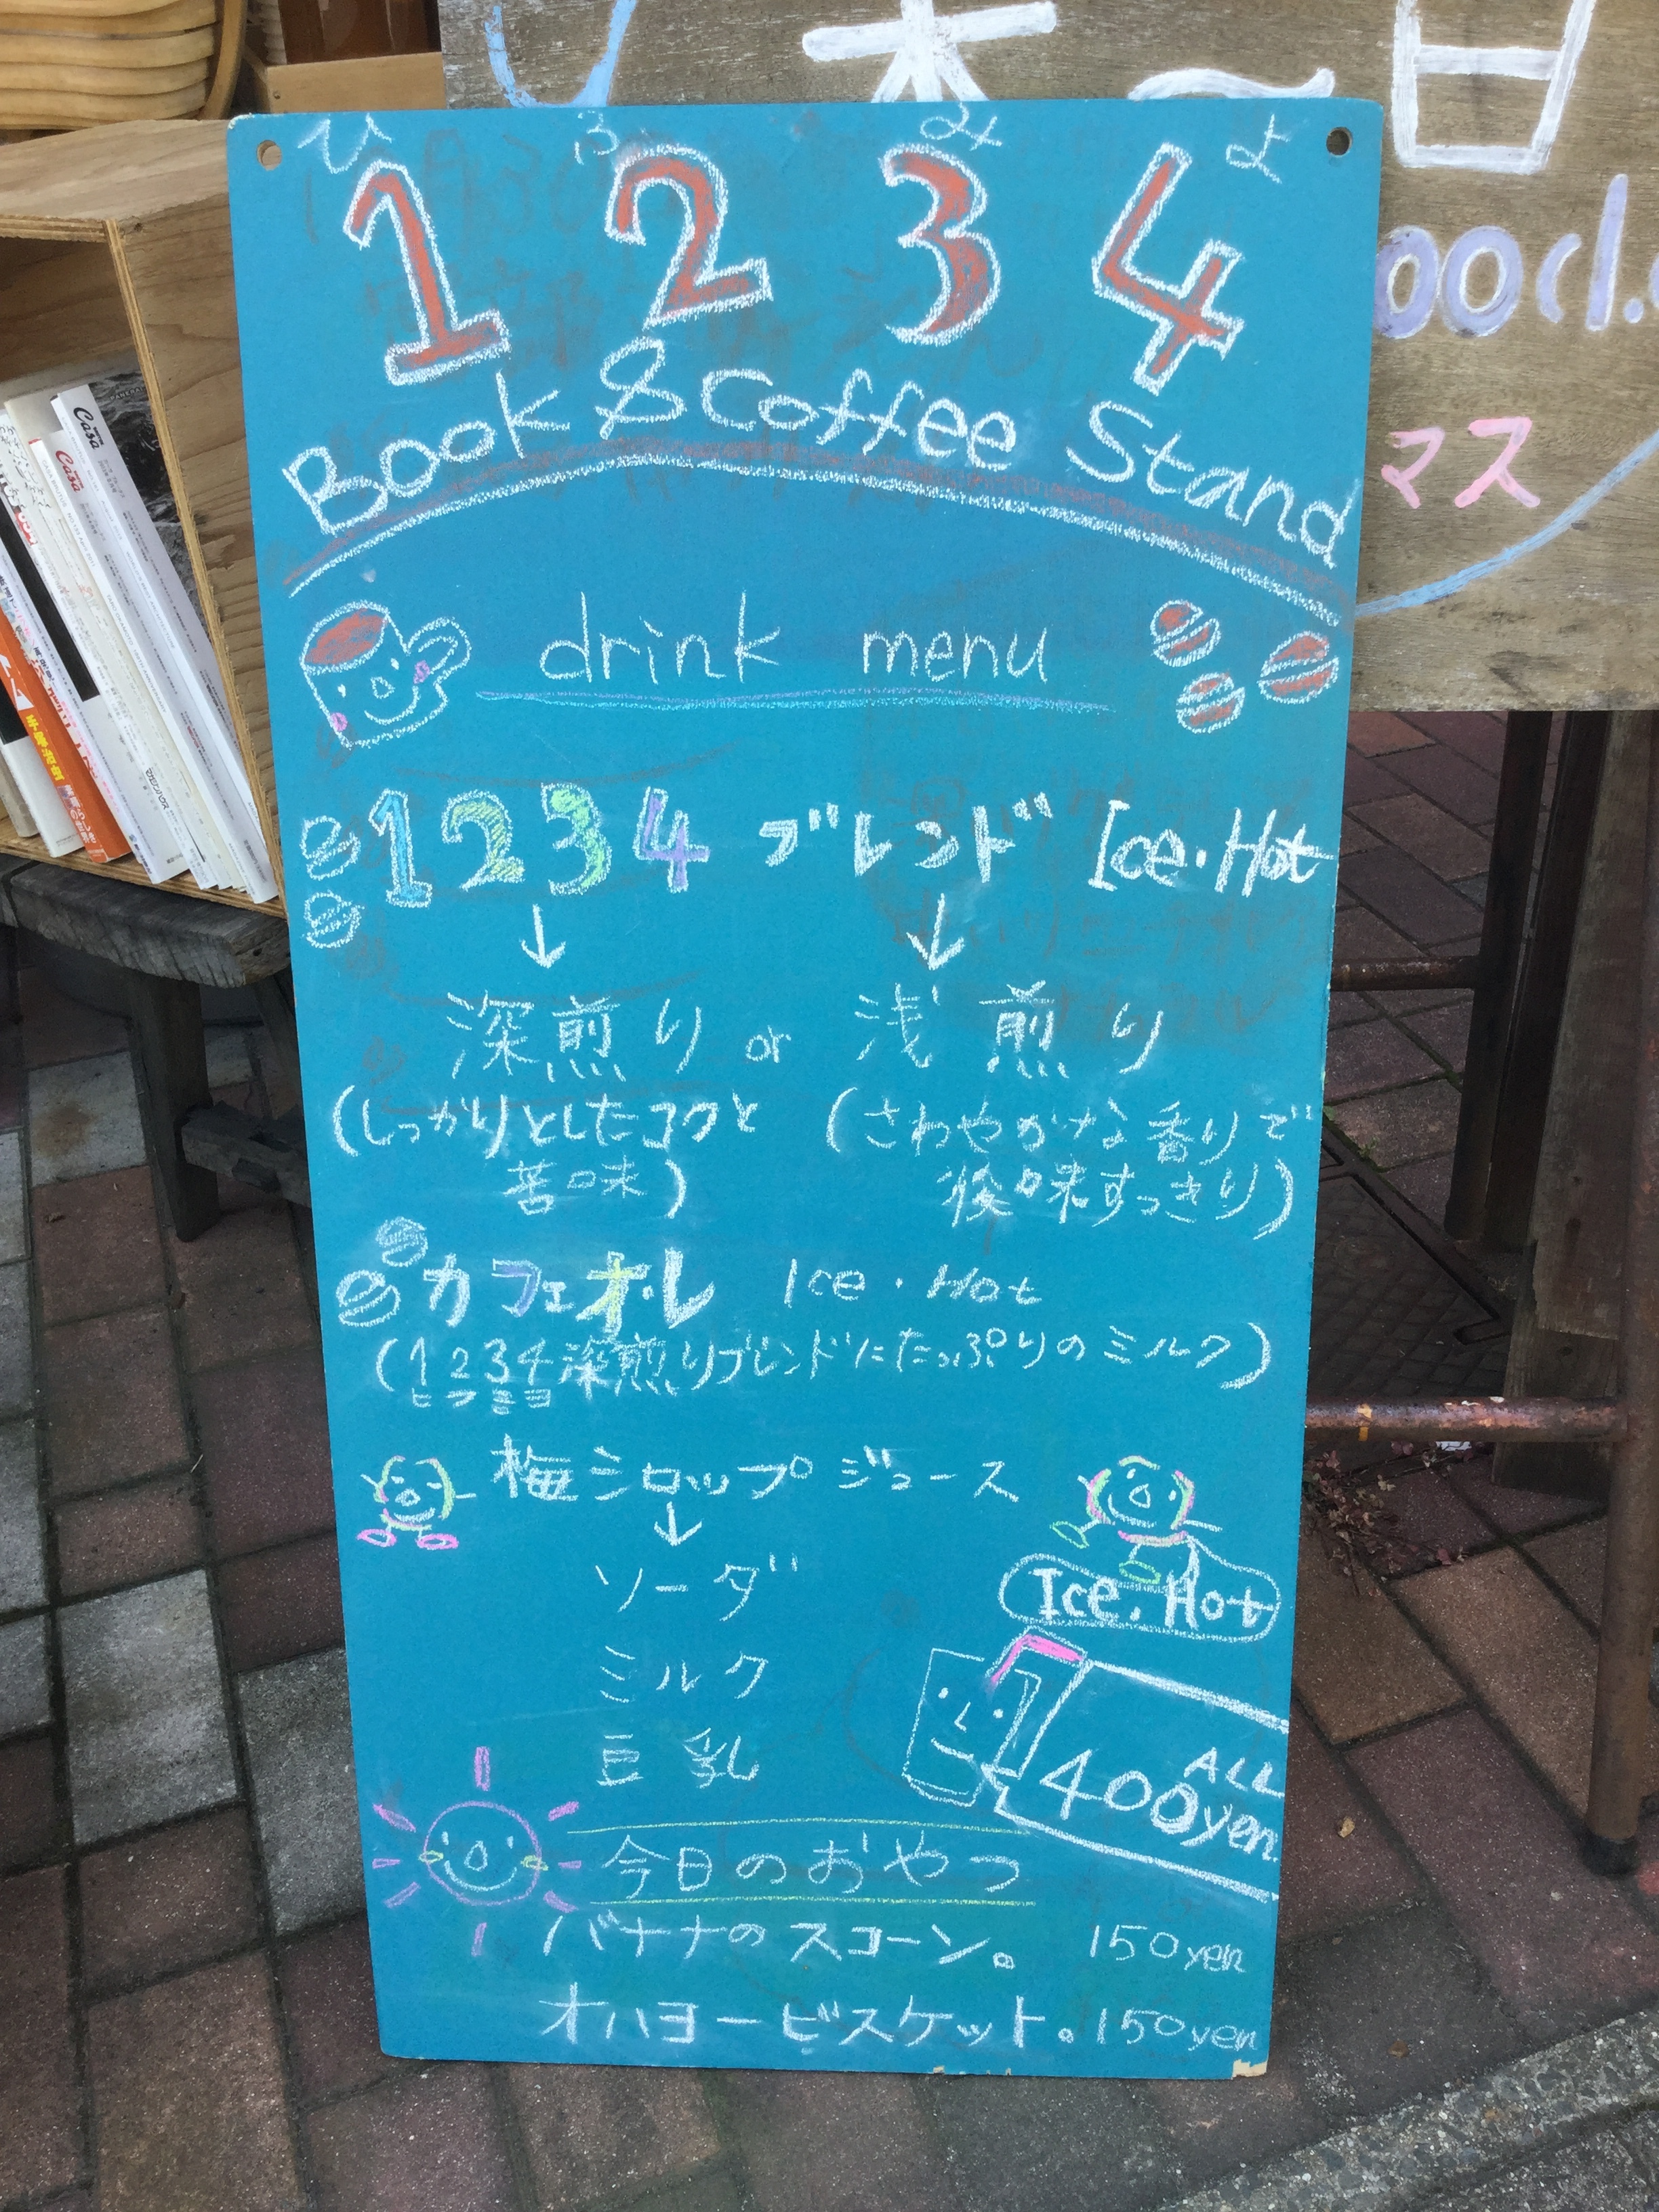 木〜日
ood.
マス
ひ ふ み よ
1 2 3 4
Book & Coffee Stand
drink menu
1234 ブレンド Ice・Hot
↓ ↓
深煎り or 浅煎り
(しっかりとしたコクと (さわやかな香りで
苦味) 後味すっきり)
カフェオ・レ Ice・Hot
(1234深煎りブレンドにたっぷりのミルク)
ヒフミヨ
梅シロップ ジュース
↓
ソーダ
Ice.Hot
ミルク
豆乳
ALL
400yen
今日のおやつ
バナナのスコーン。 150yen
オハヨービスケット。150yen
Casa
Casa
マガジンハウス